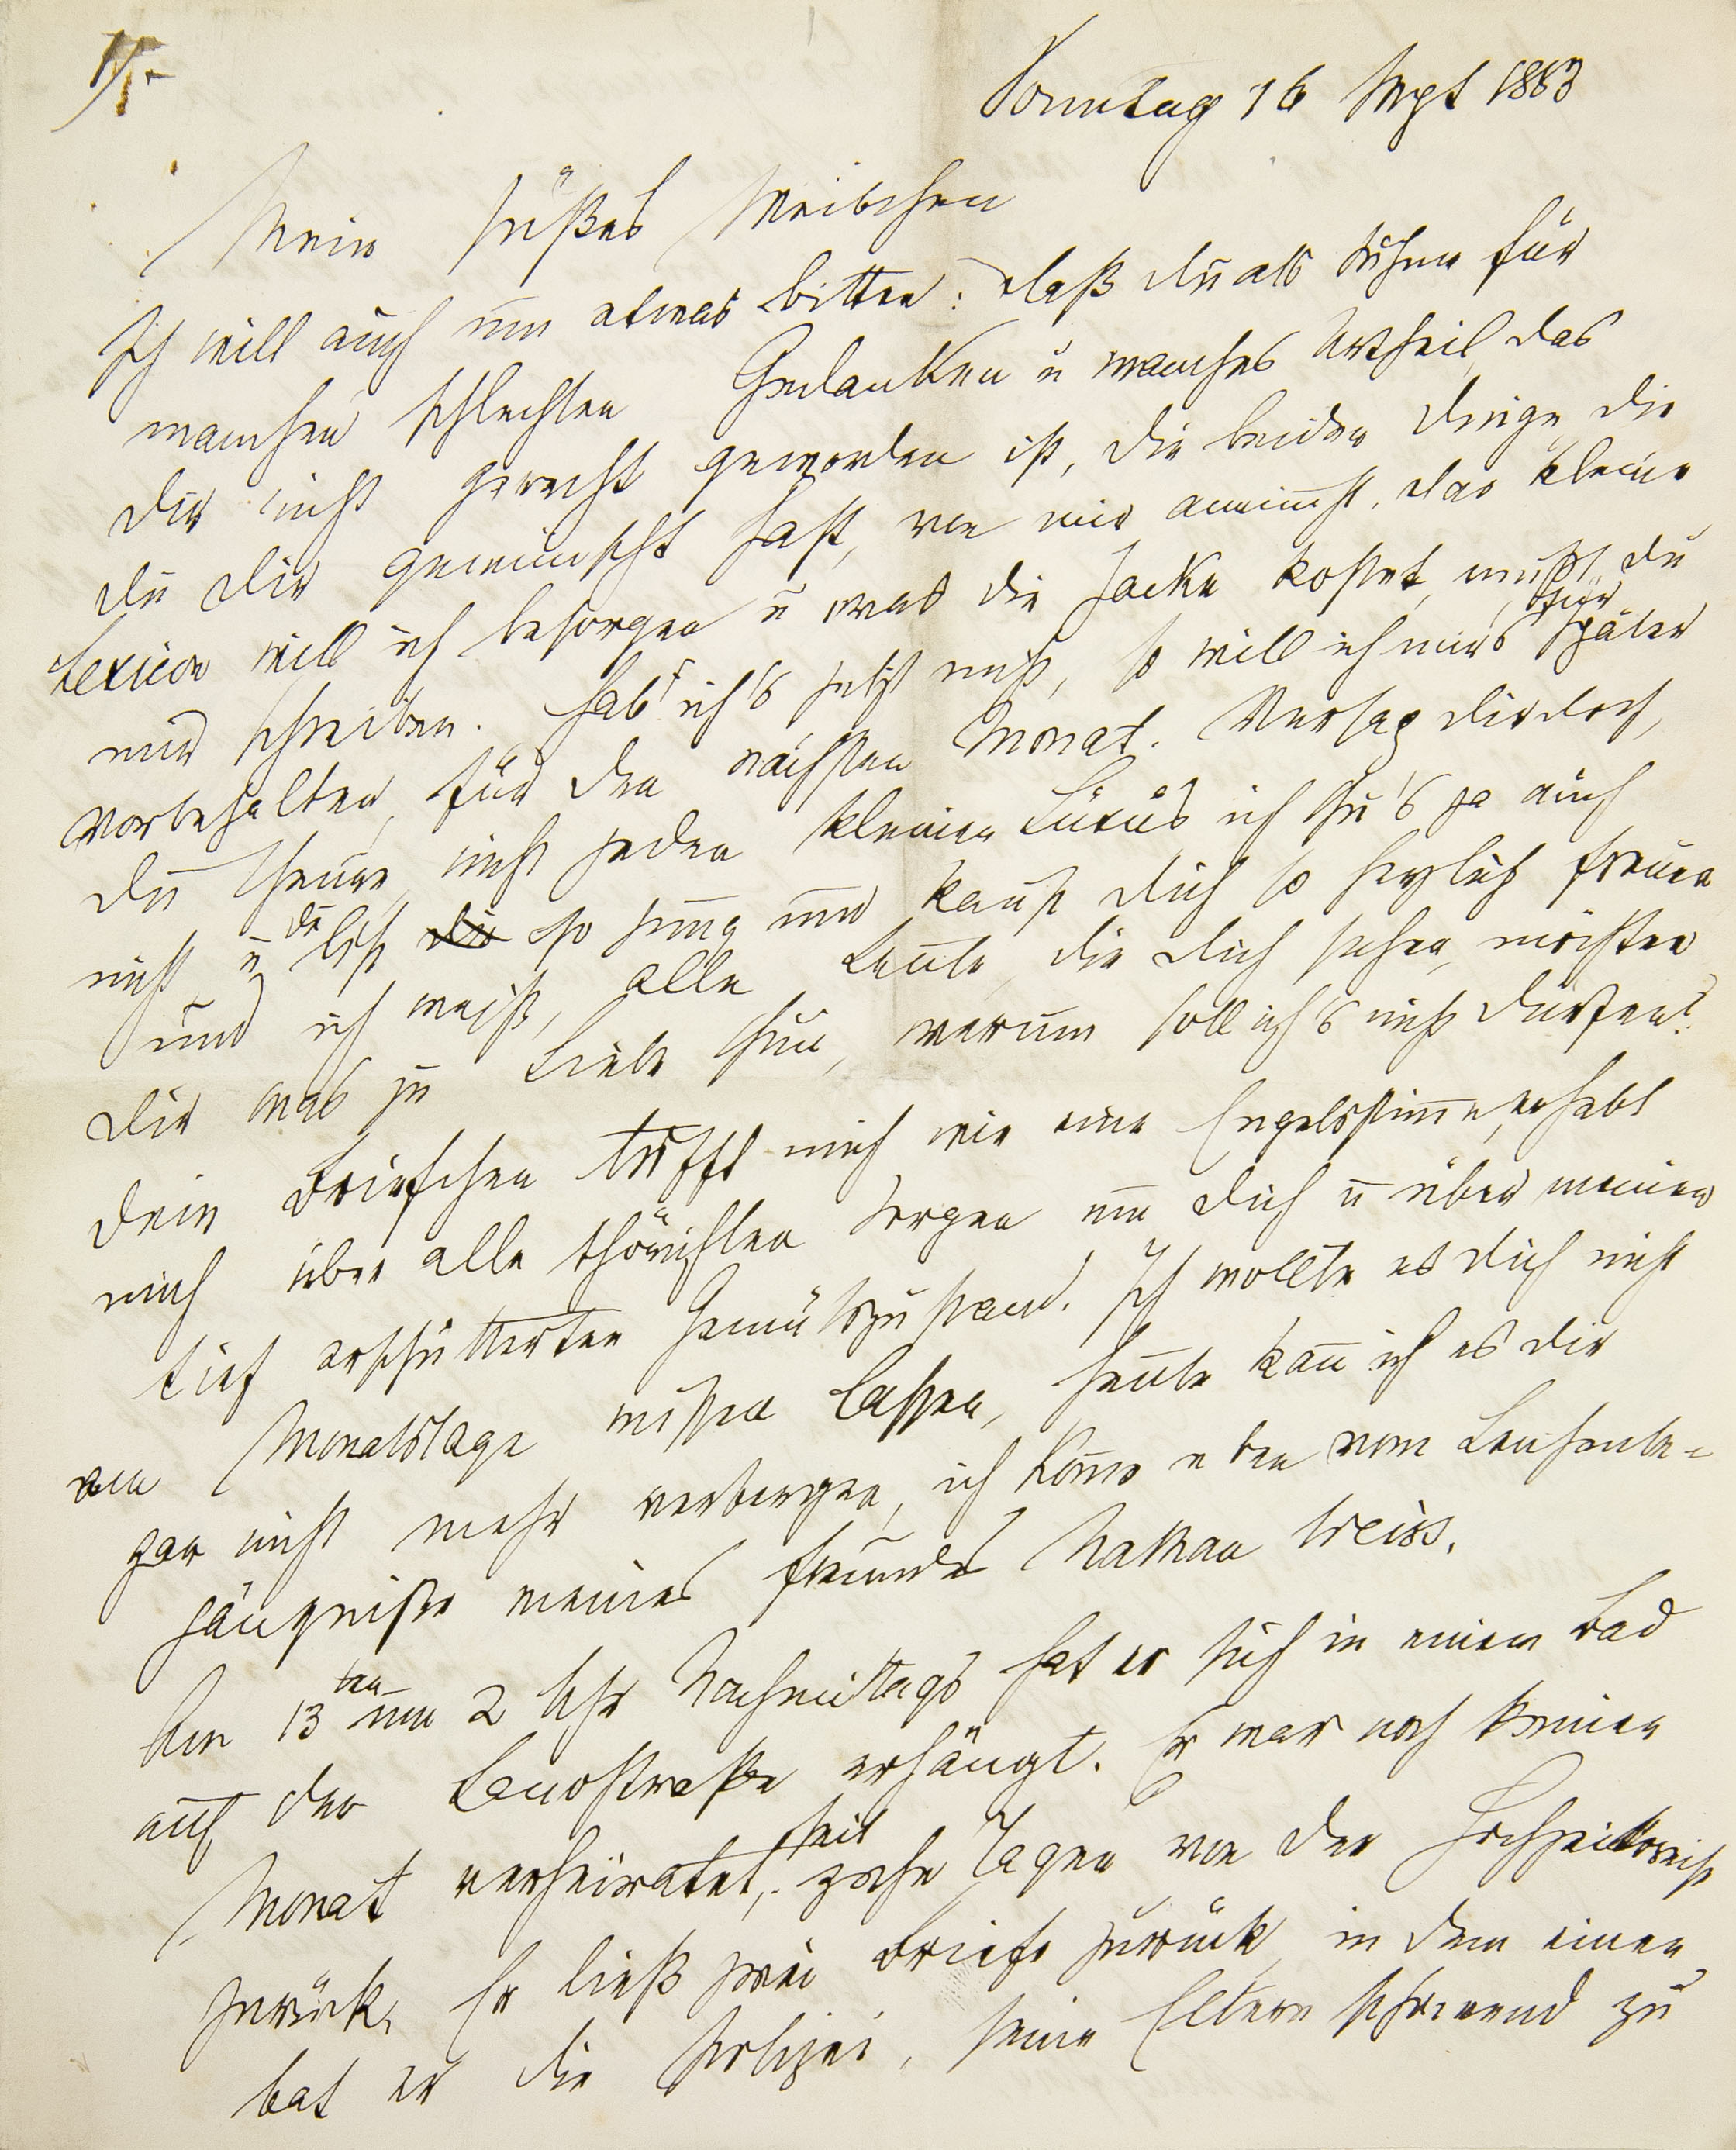 1/-
Sonntag 16 Sept 1883
Mein süßes Weibchen
Ich will auch um etwas bitten: daß du als Sühne für
manchen schlechten Gedanken u manches Urtheil, das
dir nicht gerecht geworden ist, die beiden Dinge, die
du dir gewünscht hast, von mir annimmst. das kleine
Lexicon will ich besorgen u was die Jacke kostet, mußt du
mir schreiben. Hab' ich's jetzt nicht, so will ich mirs für später
vorbehalten, für den nächsten Monat. Versag dir doch,
du theure, nicht jeden kleinen Luxus ich thu's ja auch
nicht u du bist so jung und kannst dich so herzlich freuen
und ich weiß, alle Leute, die dich sehen, möchten
dir was zu Liebe thun, warum soll ich's nicht dürfen?
Dein Briefchen trifft mich wie eine Engelsstimme, erhebt
mich über alle thörichten Sorgen um dich u über meinen
tief erschütterten Gemütszustand. Ich wollte es dich nicht
am Monatstage wissen lassen, heute kann ich es dir
gar nicht mehr verbergen, ich komme eben vom Leichenbe-
gängniße meines Freundes Nathan Weiss.
Am 13ten um 2 Uhr Nachmittags hat er sich in einem Bad
auf der Landstraße erhängt. Er war noch keinen
Monat verheiratet, seit zehn Tagen von der Hochzeitsreise
zurück. Er ließ zwei Briefe zurück, in dem einen
bat er die Polizei, seine Eltern schonend zu